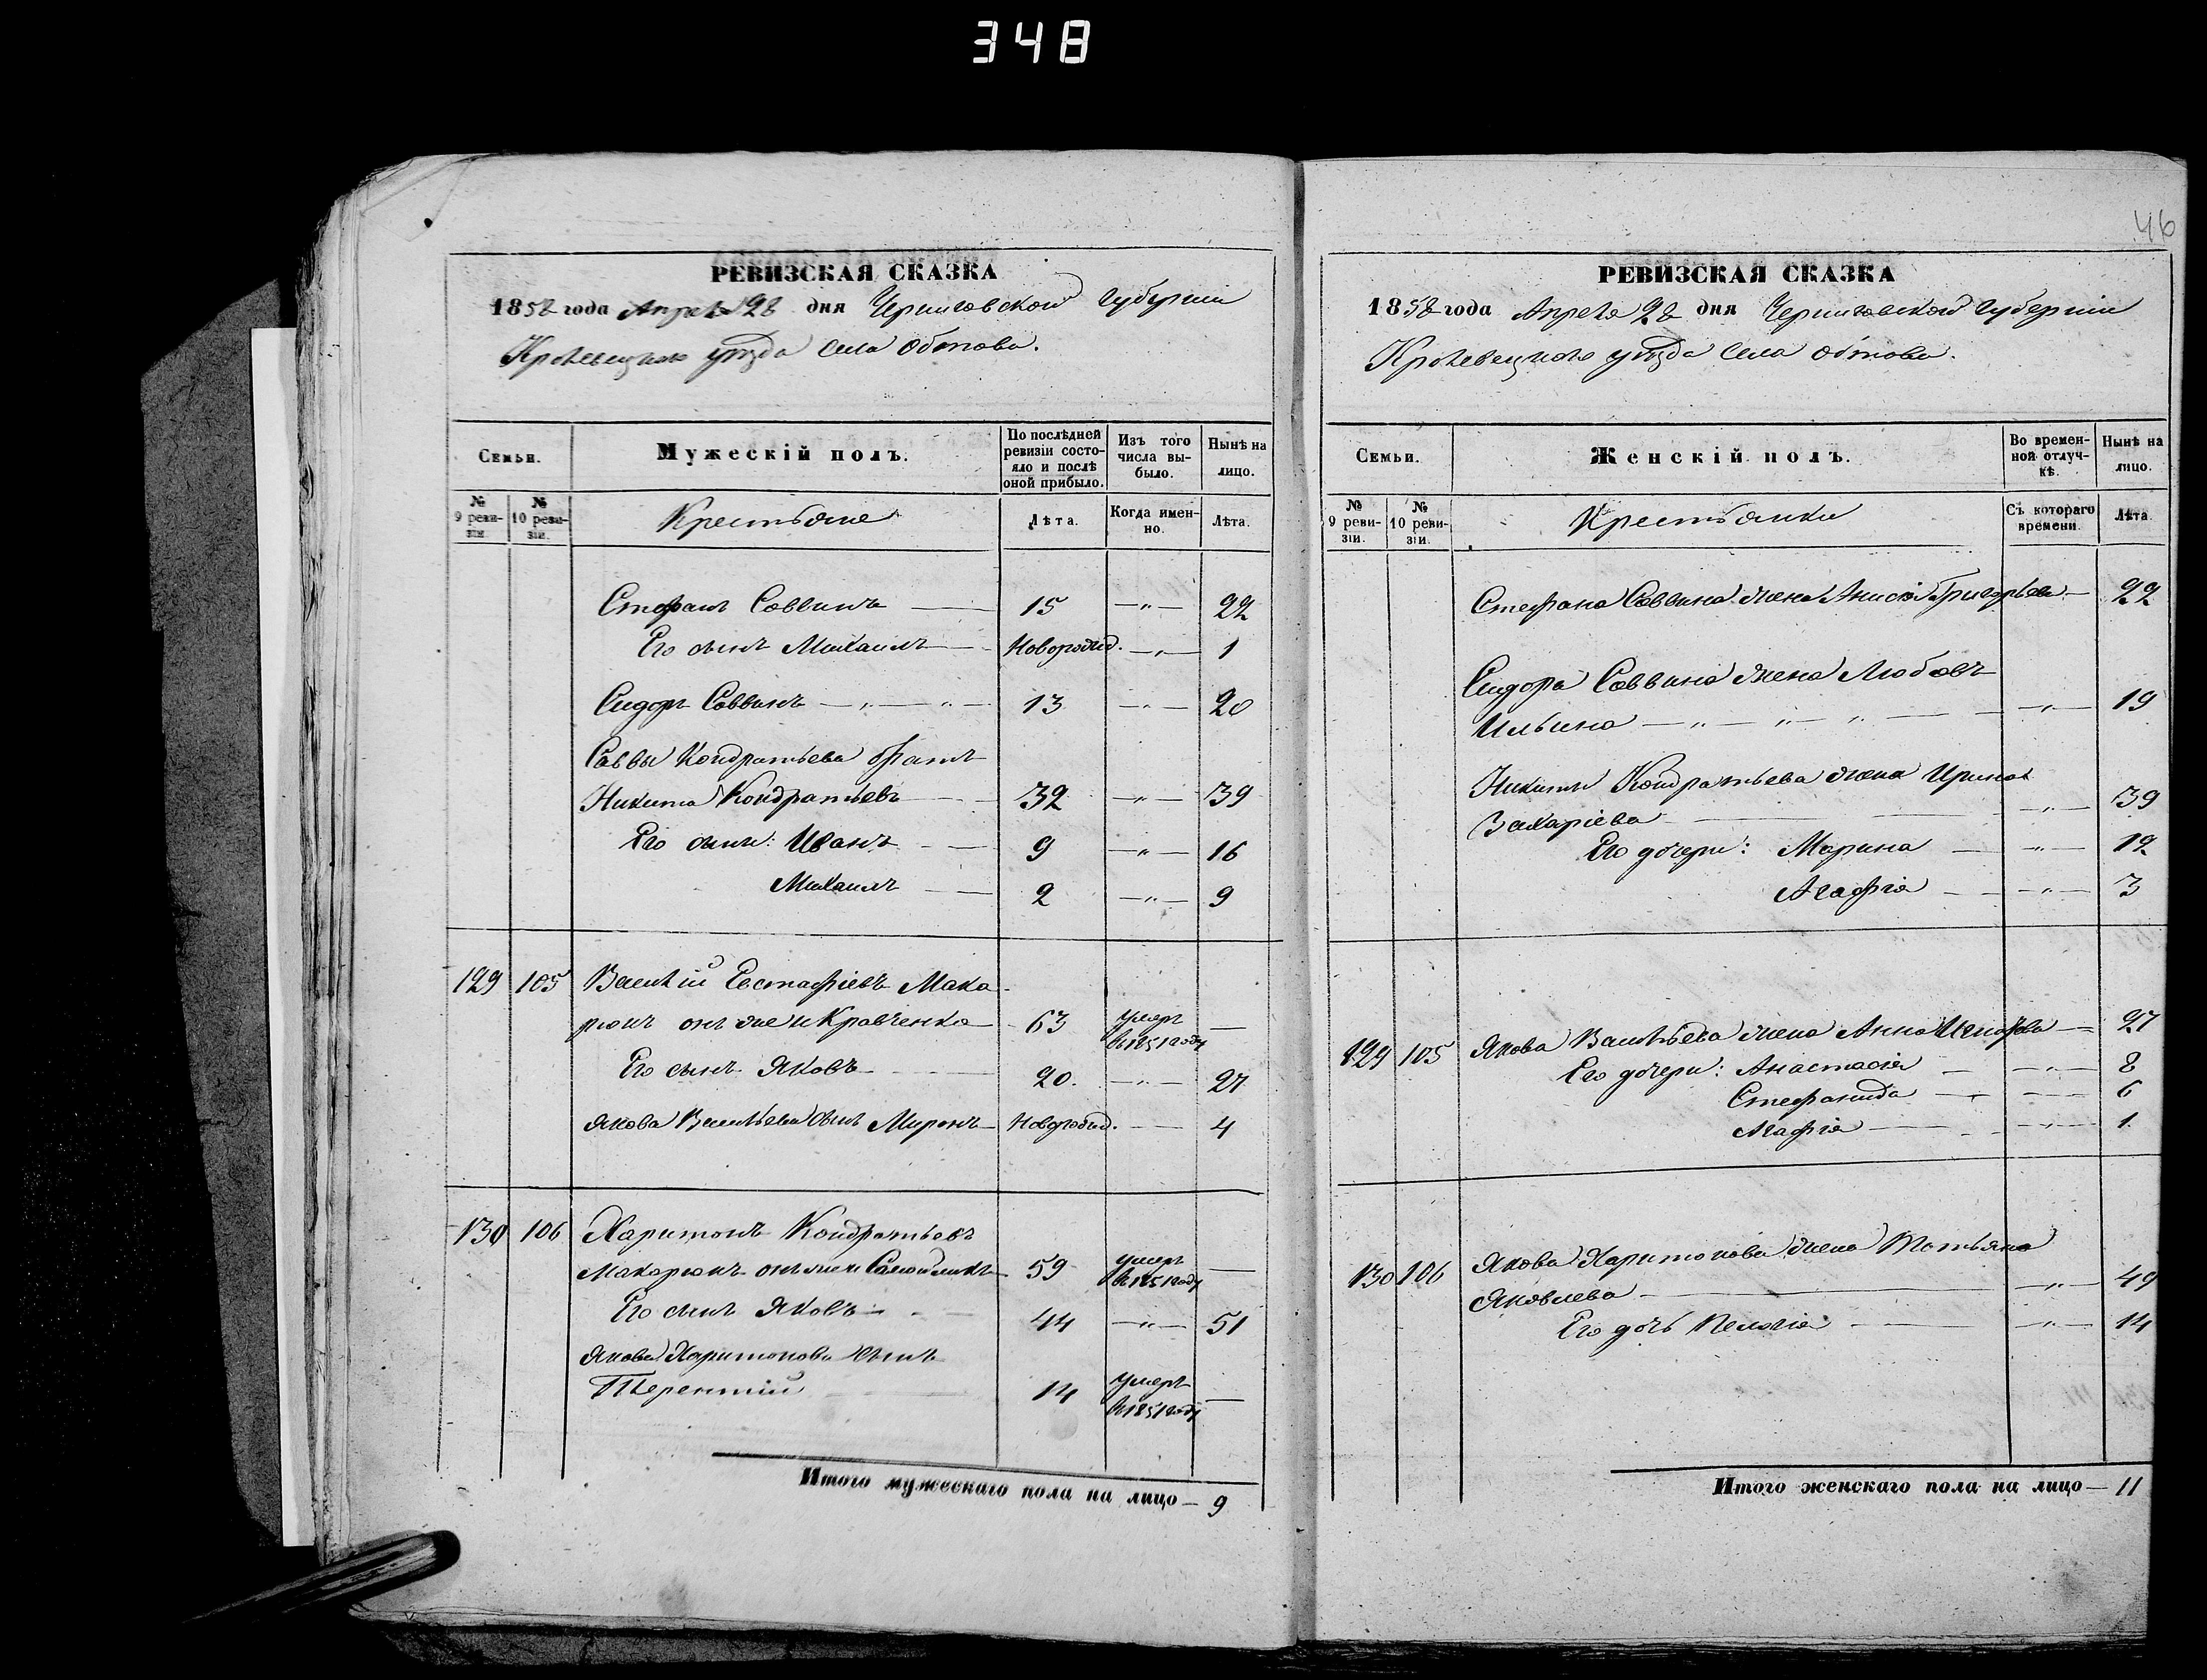 348
46
РЕВИЗСКАЯ СКАЗКА
1858 года Апреля 28 дня Черниговской губерніи
Кролевецкаго уѣзда села Обтова.
Семьи.
Мужескій полъ.
По послѣдней ревизіи состояло и послѣ оной прибыло.
Изъ того числа выбыло.
Нынѣ на лицо.
№ 9 ревизіи.
№ 10 ревизіи.
Крестьяне
Лѣта.
Когда именно.
Лѣта.
Стефанъ Саввинъ — 15 — „ — 22
Его сынъ Михаилъ — Новорожд. — „ — 1
Сидоръ Саввинъ — „ — „ — 13 — „ — 20
Саввы Кондратьева братъ
Никита Кондратьевъ — 32 — „ — 39
Его сыны: Иванъ — 9 — „ — 16
Михаилъ — 2 — „ — 9
129 105 Василій Евстафіевъ Мака-
рюкъ онъ же и Кравченко 63 умеръ в 1851 году —
Его сынъ Яковъ — 20. — „ — 27
Якова Васильева сынъ Миронъ — Новорожд. — 4
130 106 Харитонъ Кондратьевъ
Макарюкъ онъ же и 59 умеръ в 1851 году —
Его сынъ Яковъ — 44 — „ — 51
Якова Харитонова сынъ
Терентій — 14 умеръ в 1851 году —
Итого мужескаго пола на лицо — 9
РЕВИЗСКАЯ СКАЗКА
1858 года Апреля 28 дня Черниговской губерніи
Кролевецкаго уѣзда села Обтова.
Семьи.
Женскій полъ.
Во временной отлучкѣ.
Нынѣ на лицо.
№ 9 ревизіи.
№ 10 ревизіи.
Крестьянки
Съ котораго времени.
Лѣта.
Стефана Саввина жена Анисія Григорьева — 22
Сидора Саввина жена Любовь
Ильина — „ — „ — „ — „ — 19
Никиты Кондратьева жена Ирина
Захаріева — „ — 39
Его дочери: Марина — „ — 12
Агафія — „ — 3
129 105 Якова Васильева жена Анна — 27
Его дочери: Анастасія — „ — 8
Стефанида — 6
Агафія — „ — 1
130 106 Якова Харитонова жена Татьяна
Яковлева — „ — 49
Его дочь Пелагія — „ — 14
Итого женскаго пола на лицо — 11